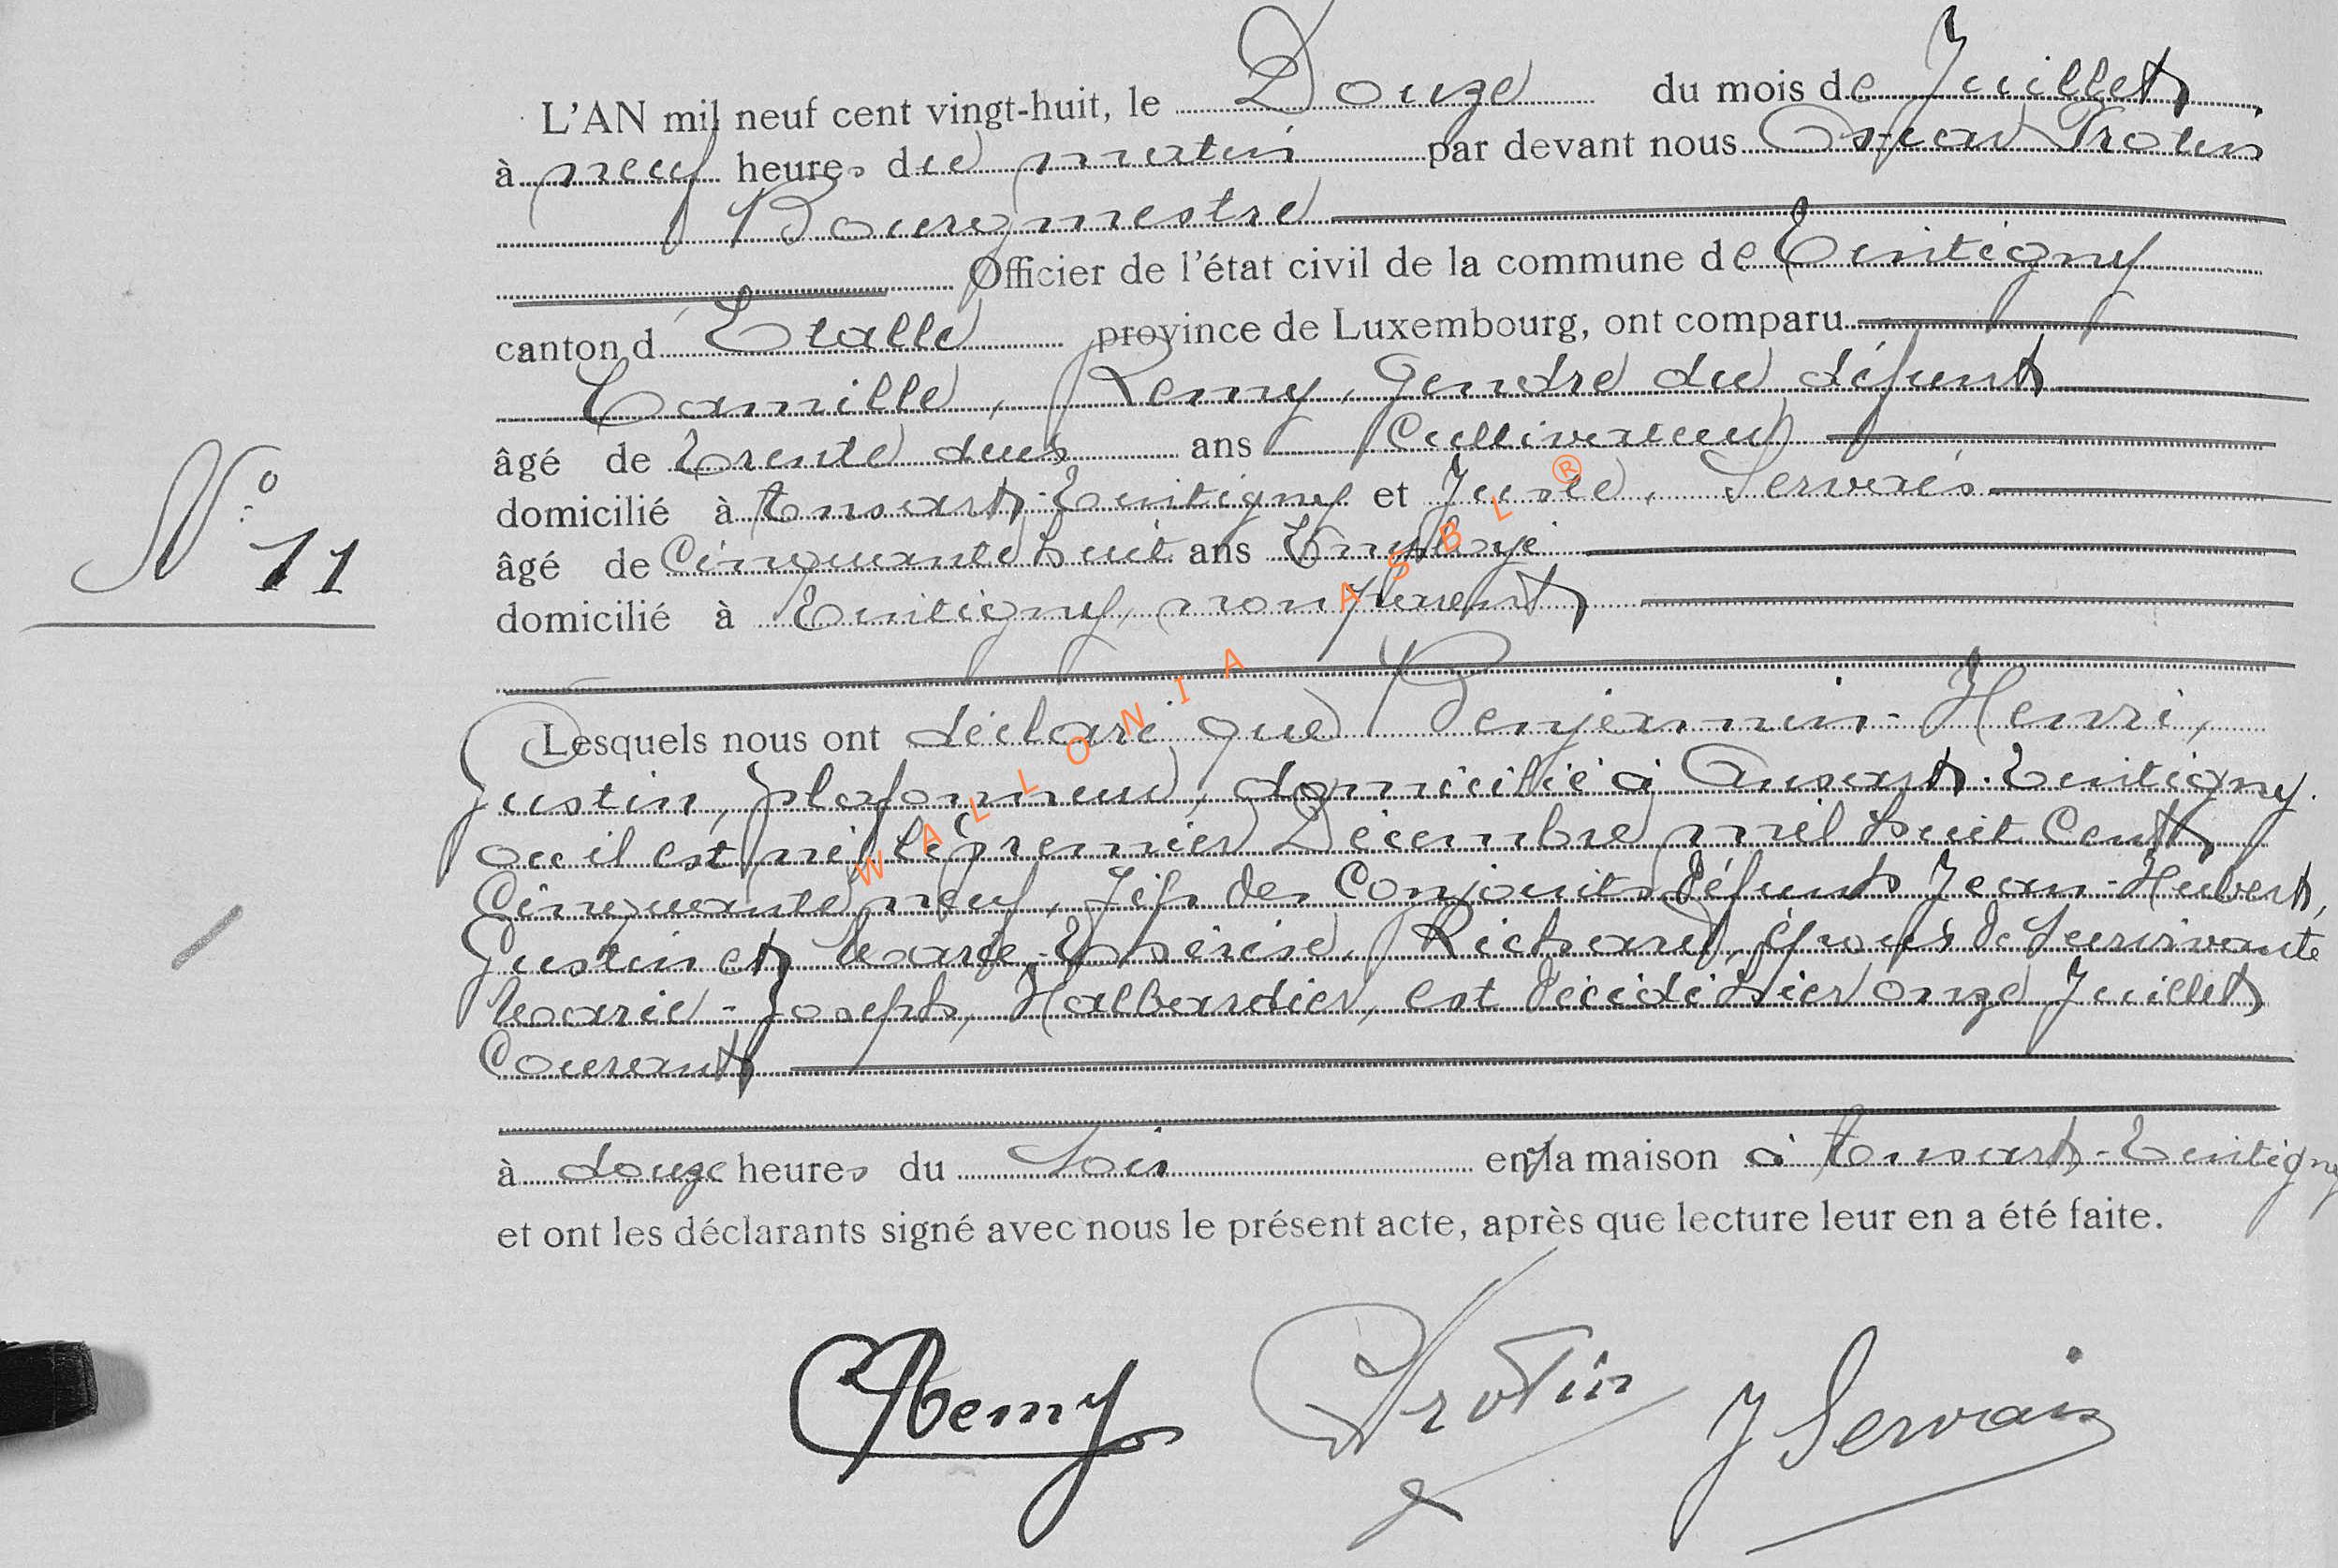 L'AN mil neuf cent vingt-huit, le Douze du mois de Juillet
à neuf heures du matin par devant nous Oscar Protin
Bourgmestre
Officier de l'état civil de la commune de Tintigny
canton d'Etalle province de Luxembourg, ont comparu
Camille, Remy, Gendre du défunt
âgé de trente deux ans Cultivateur
domicilié à Ansart-Tintigny et Jules, Servais
N° 11
âgé de Cinquante huit ans Employé
domicilié à Tintigny, non parent
Lesquels nous ont déclaré que Benjamin-Henri,
Justin, plafonneur, domicilié à Ansart-Tintigny.
ou il est né le premier Décembre mil huit Cent
Cinquante neuf, fils des Conjoints défunts Jean-Hubert,
Justin et Marie-Thérèse, Richard, époux de survivante
Marie-Joseph, Halbardier, est décédé hier onze Juillet
Courant
à douze heures du soir en la maison à Ansart-Tintigny
et ont les déclarants signé avec nous le présent acte, après que lecture leur en a été faite.
CRemy Protin J Servais
WALLONIA ASBL ®